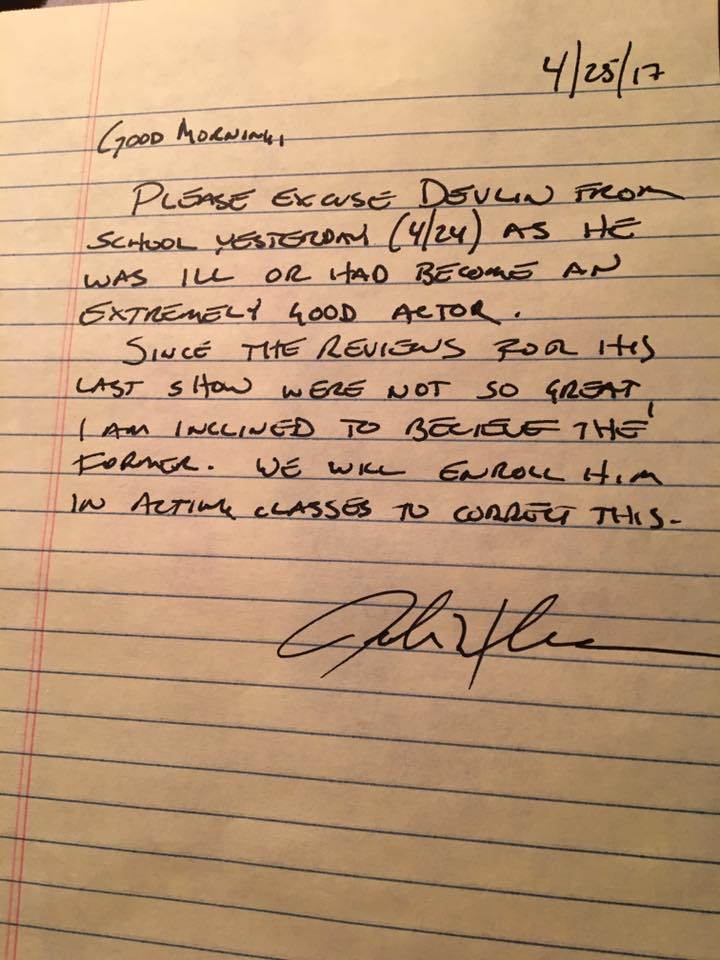 4/25/17
GOOD MORNING,
PLEASE EXCUSE DEVLIN FROM
SCHOOL YESTERDAY (4/24) AS HE
WAS ILL OR HAD BECOME AN
EXTREMELY GOOD ACTOR.
SINCE THE REVIEWS FOR HIS
LAST SHOW WERE NOT SO GREAT,
I AM INCLINED TO BELIEVE THE
FORMER. WE WILL ENROLL HIM
IN ACTING CLASSES TO CORRECT THIS.